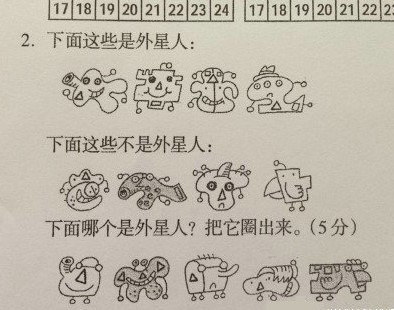 17 18 19 20 21 22 23 24 17 18 19 20 21 22
2. 下面这些是外星人：
下面这些不是外星人：
下面哪个是外星人？把它圈出来。（5分）